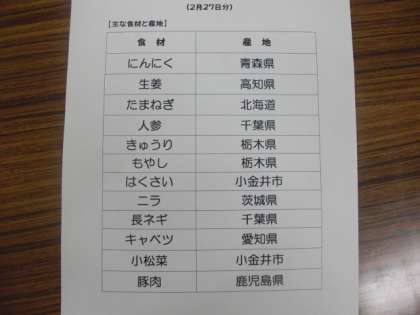 (2月27日分)
【主な食材と産地】
食材 産地
にんにく 青森県
生姜 高知県
たまねぎ 北海道
人参 千葉県
きゅうり 栃木県
もやし 栃木県
はくさい 小金井市
ニラ 茨城県
長ネギ 千葉県
キャベツ 愛知県
小松菜 小金井市
豚肉 鹿児島県